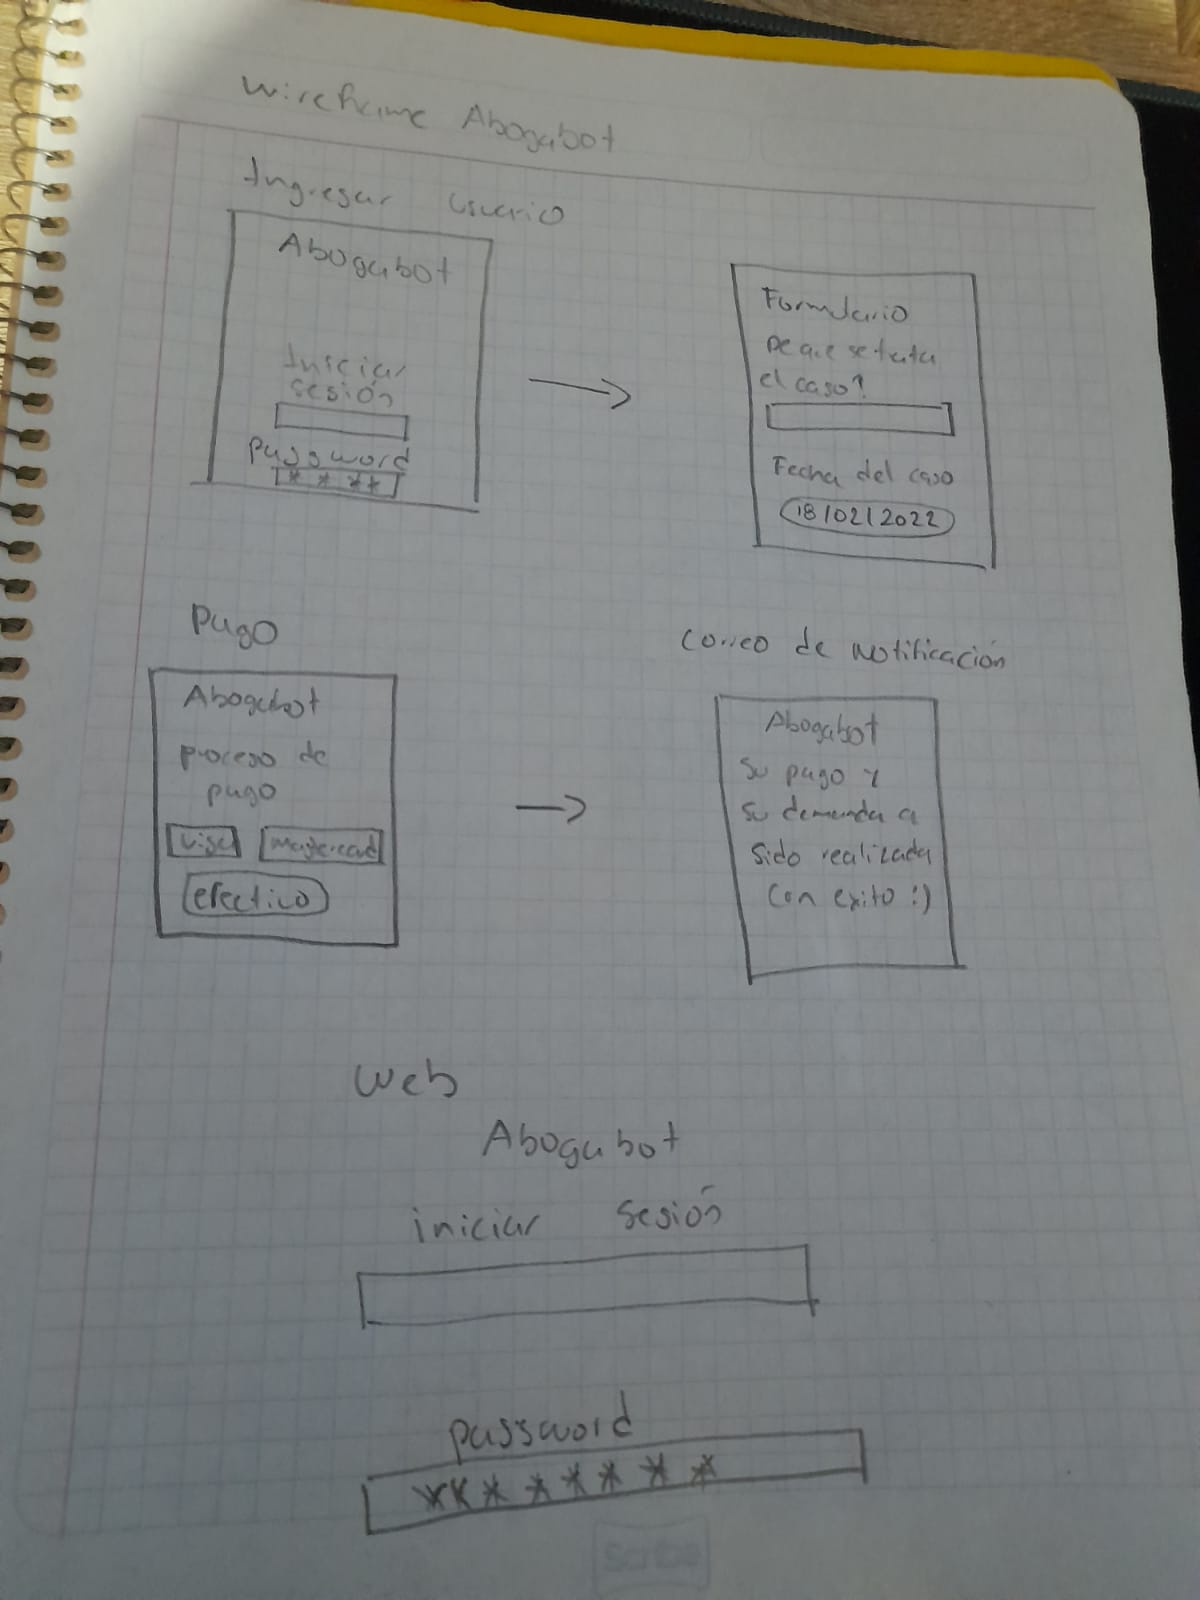 Wireframe Abogabot
Ingresar usuario
Abogabot
Iniciar
sesión
password
* * **
Formulario
De que se trata
el caso?
Fecha del caso
18/02/2022
Pago
Abogabot
proceso de
pago
visa mastercard
efectivo
correo de notificación
Abogabot
Su pago y
su demanda a
sido realizada
con exito :)
Web
Abogabot
iniciar sesión
password
********
Scribe